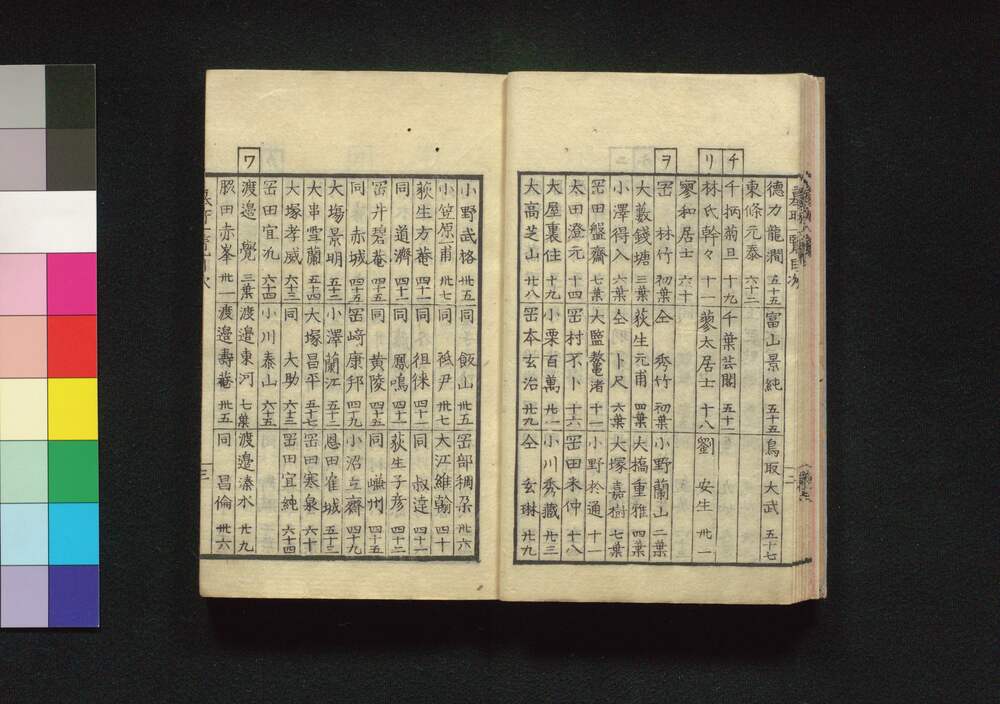 德力龍澗 五十五 富山景純 五十五 鳥取大武 五十七
東條元泰 六十二
チ 千柄菊旦 十九 千葉芸閣 五十一
リ 林氏幹々 十一 蓼太居士 十八 劉 安生 卅一
寥和居士 六十
ヲ 罡 林竹 初葉 仝 秀竹 初葉 小野蘭山 二葉
大藪錢塘 三葉 荻生元甫 四葉 大橋重雅 四葉
小澤得入 六葉 仝 卜尺 六葉 大塚嘉樹 七葉
罡田盤齋 七葉 大監鼇渚 十一 小野於通 十一
太田澄元 十四 罡村不卜 十六 罡田来仲 十八
大屋裏住 十九 小栗百萬 小川秀藏 廿三
大高芝山 廿八 罡本玄治 廿九 仝 玄琳 廿九
小野武格 卅五 同 飯山 卅五 罡部稠朶 卅六
小笠原一甫 卅七 同 祗尹 卅七 大江維翰 四十
荻生方菴 四十一 同 徂徠 四十一 同 叔達 四十一
同 道濟 四十一 同 鳳鳴 四十一 荻生子彦 四十二
罡井碧菴 四十五 同 黄陵 四十五 同 嵰州 四十五
同 赤城 四十五 罡﨑康邦 四十九 小沼玄齋 四十九
大塲景明 五十三 小澤蘭江 五十三 恩田隺城 五十三
大串雪蘭 五十四 大塚昌平 五十七 罡田寒泉 六十
大塚孝威 六十三 同 大助 六十三 罡田宜純 六十四
罡田宜汎 六十四 小川泰山 六十五
ワ 渡邉 覺 三葉 渡邉東河 七葉 渡邉溱水 廿九
脇田赤峯 卅一 渡邉壽菴 卅五 同 昌倫 卅六
三